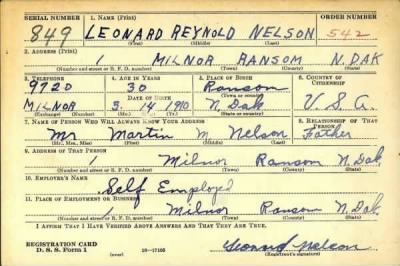 SERIAL NUMBER 1. NAME (Print) ORDER NUMBER
849 LEONARD REYNOLD NELSON 542
(First) (Middle) (Last)
2. ADDRESS (Print)
1 MILNOR RANSOM N.DAK
(Number and street or R. F. D. number) (Town) (County) (State)
3. TELEPHONE 4. AGE IN YEARS 5. PLACE OF BIRTH 6. COUNTRY OF CITIZENSHIP
9720 30 Ransom
DATE OF BIRTH (Town or county)
MILNOR 3. 14 1910 N Dak U.S.A.
(Exchange) (Mo.) (Day) (Yr.) (State or country)
7. NAME OF PERSON WHO WILL ALWAYS KNOW YOUR ADDRESS 8. RELATIONSHIP OF THAT PERSON
Mr Martin M. Nelson Father
(Mr., Mrs., Miss) (First) (Middle) (Last)
9. ADDRESS OF THAT PERSON
1 Milnor Ransom N.Dak.
(Number and street or R. F. D. number) (Town) (County) (State)
10. EMPLOYER'S NAME
Self Employed
11. PLACE OF EMPLOYMENT OR BUSINESS
Milnor Ransom N Dak.
(Number and street or R. F. D. number) (Town) (County) (State)
I AFFIRM THAT I HAVE VERIFIED ABOVE ANSWERS AND THAT THEY ARE TRUE.
REGISTRATION CARD
D. S. S. Form 1 (over) 16—17105 Leonard Nelson
(Registrant's signature)